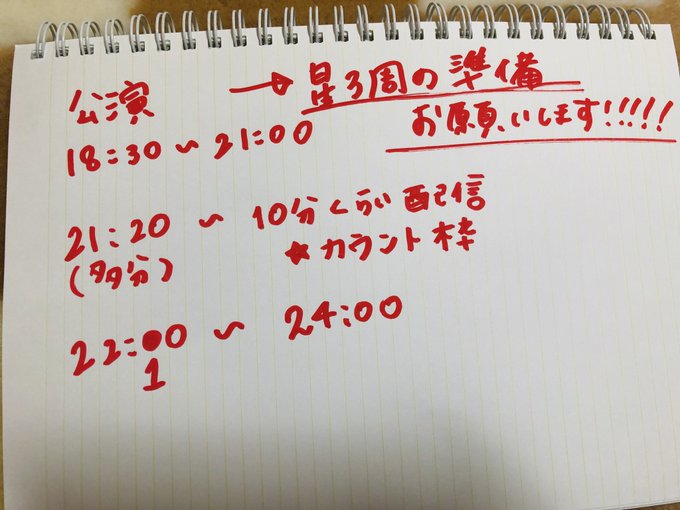 公演 → 星3周の準備
お願いします!!!!!
18:30 ~ 21:00
21:20 ~ 10分くらい配信
(多分) ★カウント枠
22:00 ~ 24:00
1